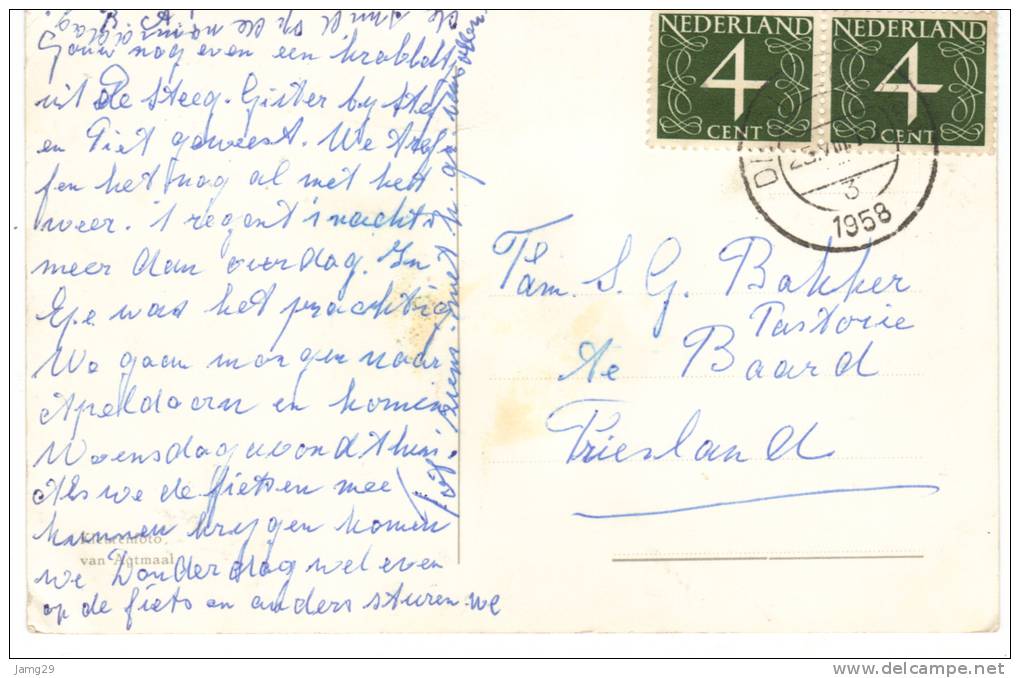 Jouw nog even een krabbdt
uit De Steeg. Gister by Stef
en Piet geweest. We tref-
fen het nog al met het
weer. 't regent 's nachts
meer dan overdag. In
Epe was het prachtig.
We gaan morgen naar
Apeldoorn en komen
Woensdagavond thuis.
Als we de fietsen mee
kunnen krijgen komen
we Donderdag wel even
op de fiets en anders sturen we
Tot ziens, met
NEDERLAND
4
CENT
NEDERLAND
4
CENT
3
1958
Fam. S. G. Bakker
Pastorie
te Baard
Friesland
Kleurenfoto
van Agtmaal
Jamg29
www.delcampe.net